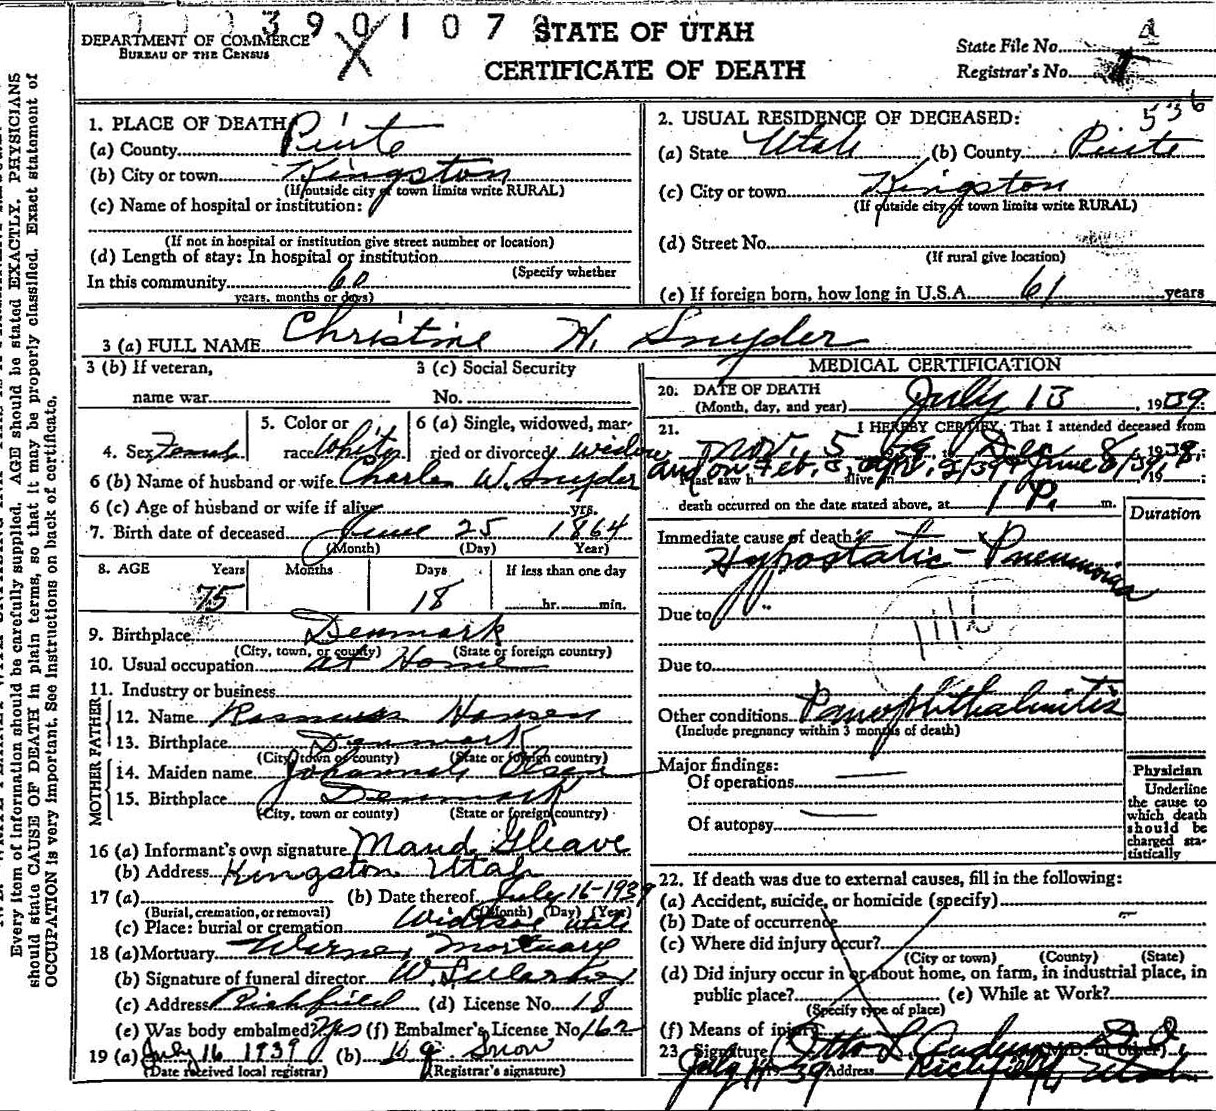 3 9 0 1 0 7
STATE OF UTAH
DEPARTMENT OF COMMERCE
BUREAU OF THE CENSUS
CERTIFICATE OF DEATH
State File No.
Registrar's No.
536
1. PLACE OF DEATH
(a) County Piute
(b) City or town Kingston
(If outside city or town limits write RURAL)
(c) Name of hospital or institution:
(If not in hospital or institution give street number or location)
(d) Length of stay: In hospital or institution
(Specify whether
In this community 60
years, months or days)
2. USUAL RESIDENCE OF DECEASED:
(a) State Utah (b) County Piute
(c) City or town Kingston
(If outside city or town limits write RURAL)
(d) Street No.
(If rural give location)
(e) If foreign born, how long in U.S.A. 61 years
3 (a) FULL NAME Christine H. Snyder
3 (b) If veteran,
name war
3 (c) Social Security
No.
4. Sex Female
5. Color or
race White
6 (a) Single, widowed, mar-
ried or divorced Widow
6 (b) Name of husband or wife Charles W. Snyder
6 (c) Age of husband or wife if alive yrs.
7. Birth date of deceased June 25 1864
(Month) (Day) Year)
8. AGE Years Months Days If less than one day
75 18 hr. min.
9. Birthplace Denmark
(City, town, or county) (State or foreign country)
10. Usual occupation at Home
11. Industry or business
FATHER
12. Name Rasmus Hansen
13. Birthplace Denmark
(City, town or county) (State or foreign country)
MOTHER
14. Maiden name Johannah Olsen
15. Birthplace Denmark
(City, town or county) (State or foreign country)
16 (a) Informant's own signature Maud Gleave
(b) Address Kingston Utah
17 (a) (b) Date thereof July 16-1939
(Burial, cremation, or removal) (Month) (Day) (Year)
(c) Place: burial or cremation Widtsoe Utah
18 (a) Mortuary Mortuary
(b) Signature of funeral director
(c) Address Richfield (d) License No. 18
(e) Was body embalmed? Yes (f) Embalmer's License No. 162
19 (a) July 16 1939 (b) Snow
(Date received local registrar) (Registrar's signature)
MEDICAL CERTIFICATION
20. DATE OF DEATH
(Month, day, and year) July 13, 1939.
21. I HEREBY CERTIFY, That I attended deceased from
Nov. 5 Dec 8, 1938,
and on Feb. June 8/39,
I last saw h alive on 19
death occurred on the date stated above, at 1 P. m.
Duration
Immediate cause of death
Hypostatic-Pneumonia
Due to
Due to
Other conditions Panophthalmitis
(Include pregnancy within 3 months of death)
Major findings:
Of operations
Of autopsy
Physician
Underline
the cause to
which death
should be
charged sta-
tistically
22. If death was due to external causes, fill in the following:
(a) Accident, suicide, or homicide (specify)
(b) Date of occurrence
(c) Where did injury occur?
(City or town) (County) (State)
(d) Did injury occur in or about home, on farm, in industrial place, in
public place? (e) While at Work?
(Specify type of place)
(f) Means of injury
23. Signature Otto (M.D. or other)
July 39 Address Richfield, Utah.
Every item of information should be carefully supplied. AGE should be stated EXACTLY. PHYSICIANS
should state CAUSE OF DEATH in plain terms, so that it may be properly classified. Exact statement of
OCCUPATION is very important. See instructions on back of certificate.